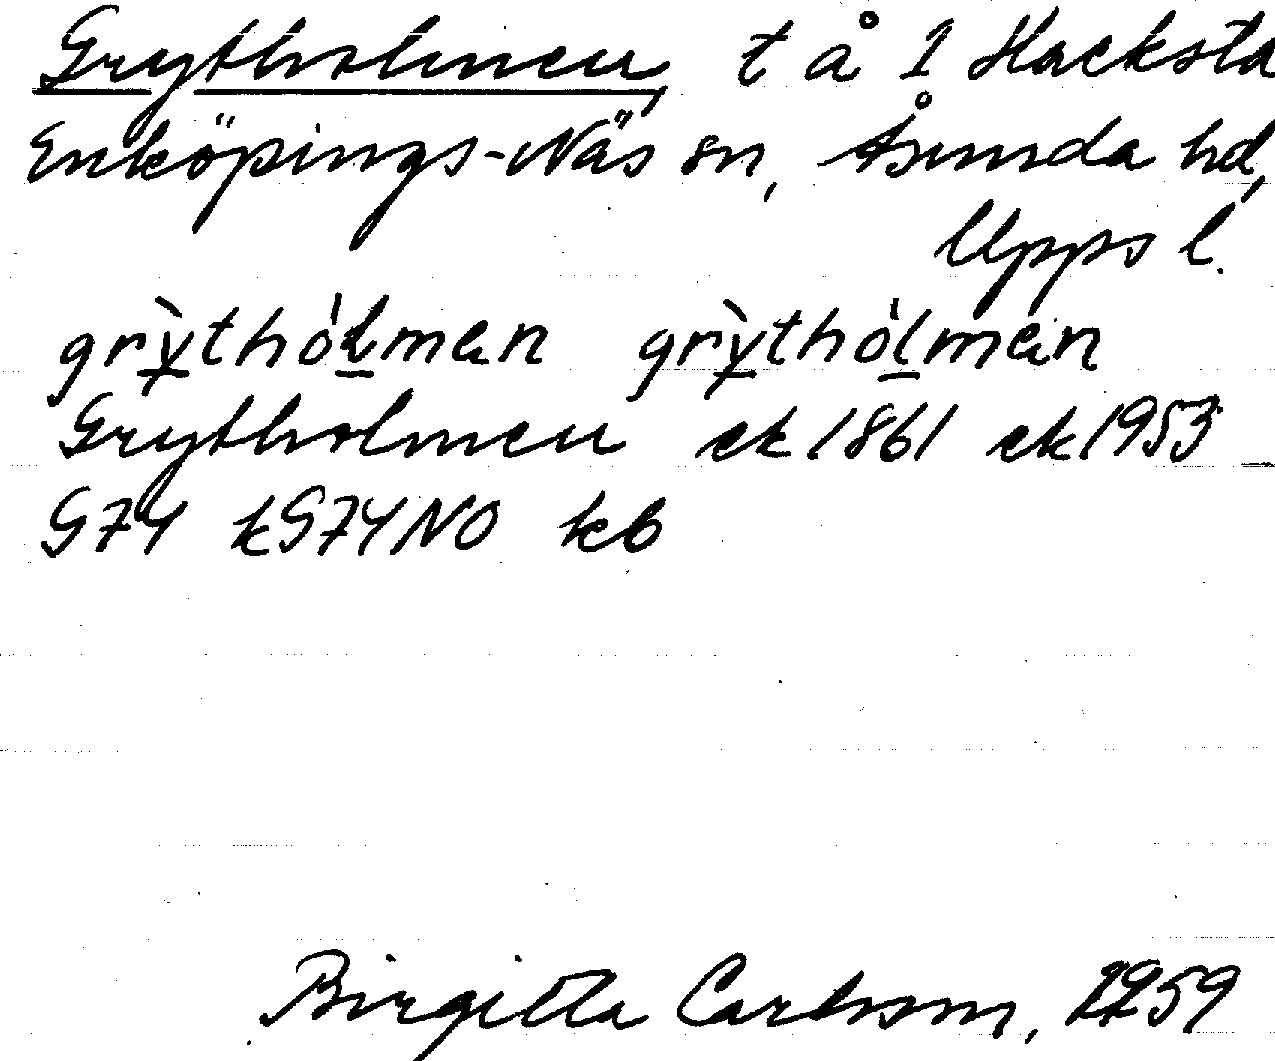 Grytholmen, t å 1 Hacksta
Enköpings-Näs sn, Åsunda hd,
Upps l.
grỳthólmen grỳthólmen
Grytholmen ek 1861 ek 1953
G74 kG74NO kb
Birgitta Carlsson, 1959